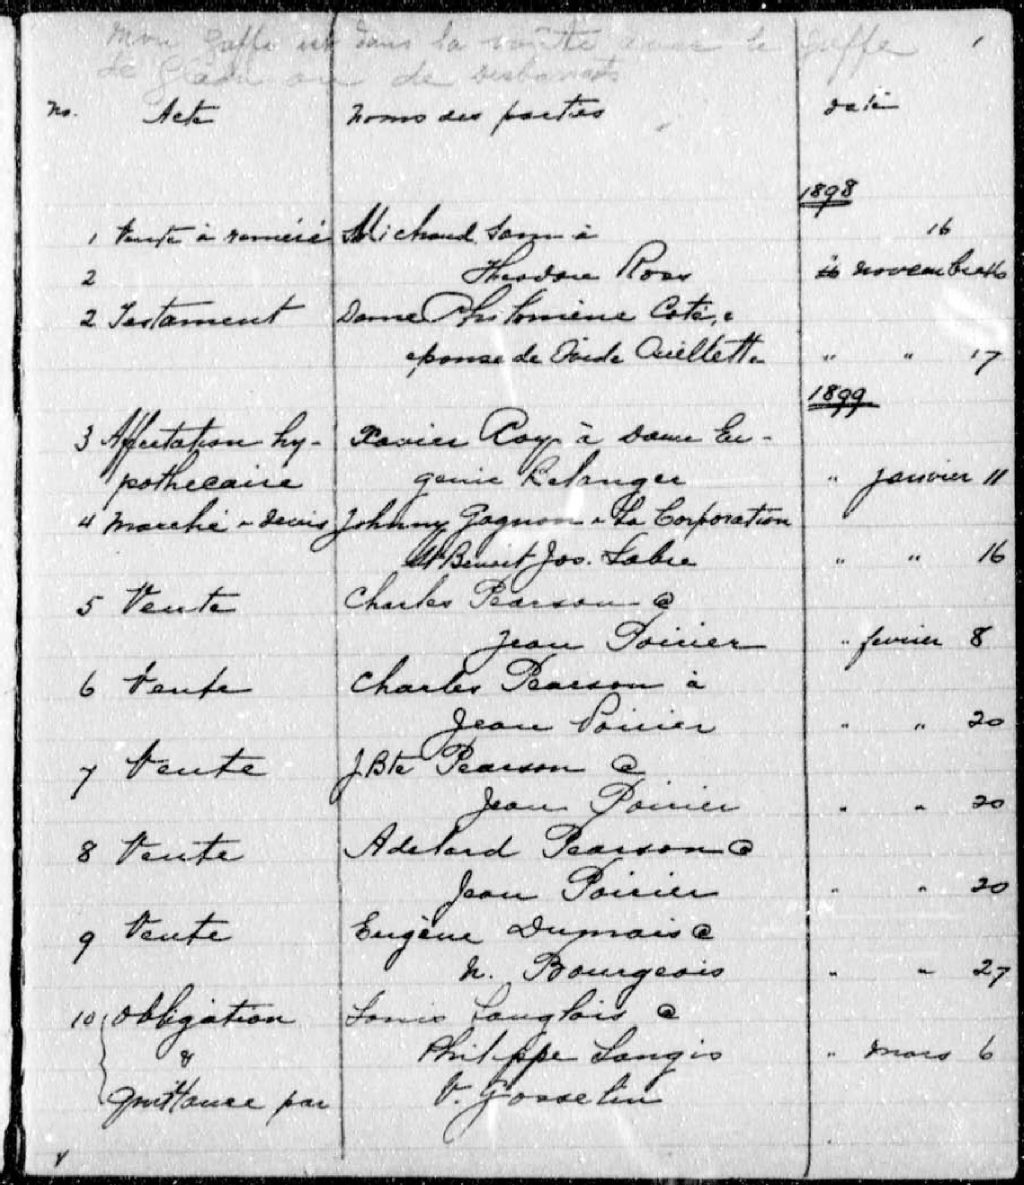 Mon Gaffe est dans la voûte avec le Gaffe
de ou de
No. Acte Noms des parties date
1898
1 Vente à réméré Michaud Sam à 16
2 Theodore Ross 16 novembre 16
2 Testament Dame Philomène Coté,
épouse de Ouellette " " 17
1899
3 Affectation hy- Xavier Roy à Dame Eu-
pothecaire genie Belanger " janvier 11
4 Marché & devis Johnny Gagnon & La Corporation
St Benoit Jos. Labre " " 16
5 Vente Charles Pearson @
Jean Poirier " fevrier 8
6 Vente Charles Pearson à
Jean Poirier " " 20
7 Vente J Bte Pearson @
Jean Poirier " " 20
8 Vente Adelard Pearson @
Jean Poirier " " 20
9 Vente Eugène Dumais @
N. Bourgeois " " 27
10 Obligation Louis Langlois @
& Philippe Langis " Mars 6
Quittance par V. Gosselin